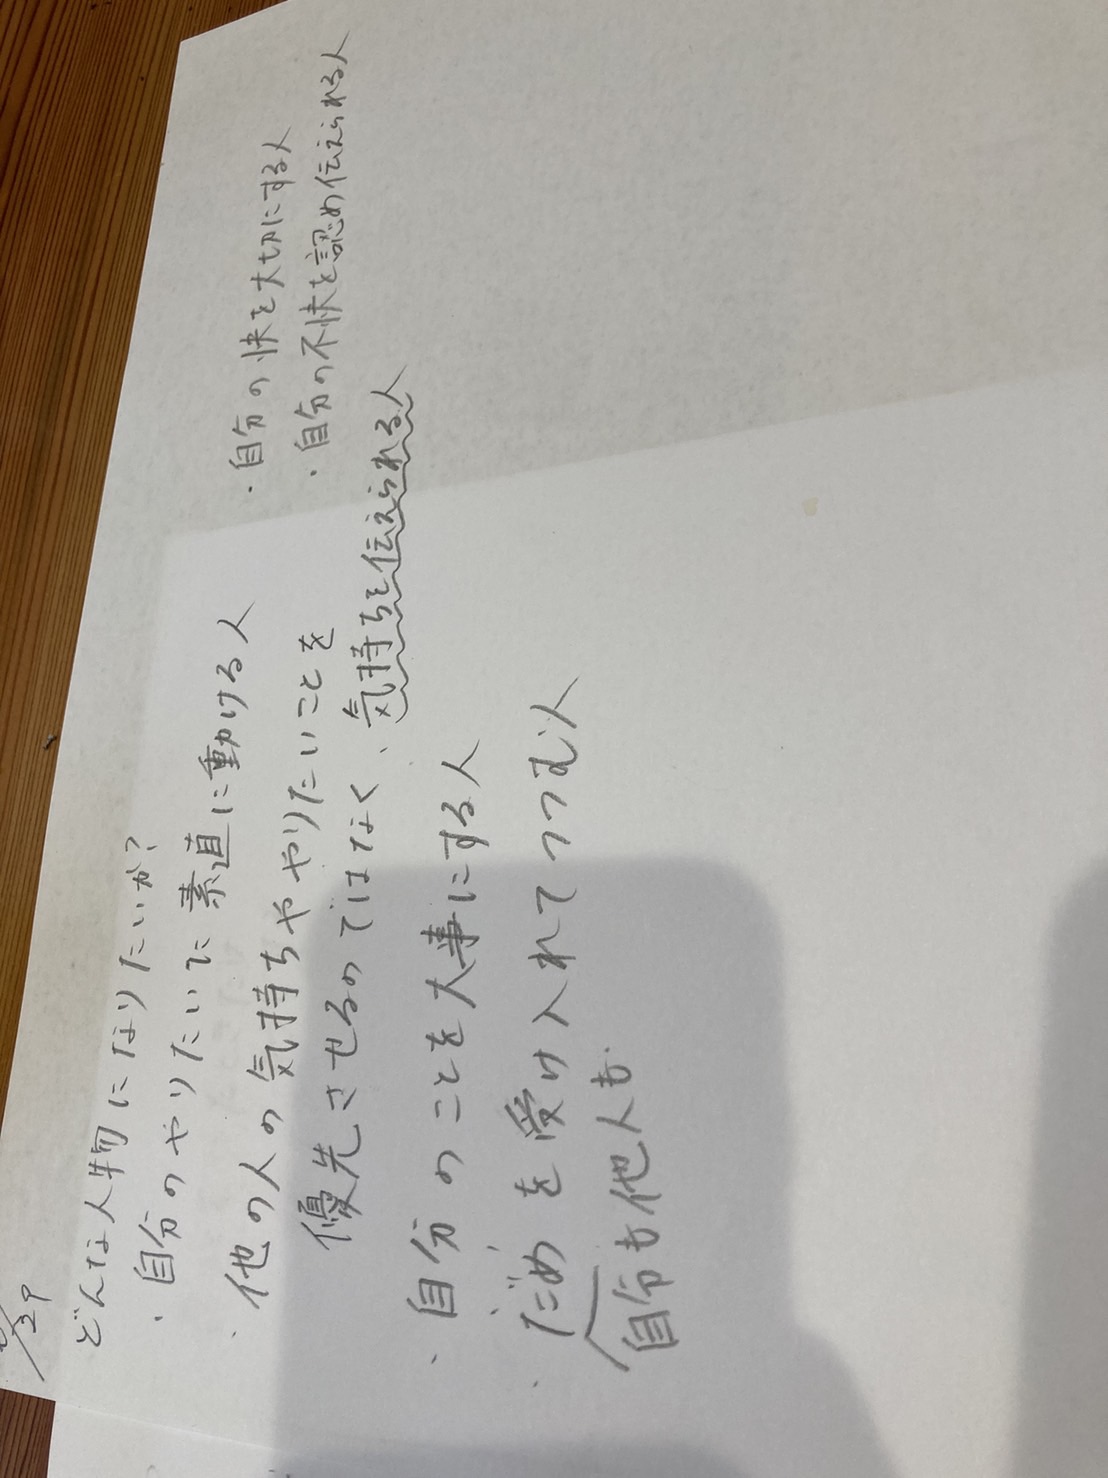 /29
どんな人物になりたいか?
・自分のやりたいに素直に動ける人
・他の人の気持ちややりたいことを
優先させるのではなく、気持ちを伝えられる人
・自分のことを大事にする人
・だめを受け入れてつつむ人
自分も他人も
・自分の快を大切にする人
・自分の不快を認め伝えられる人